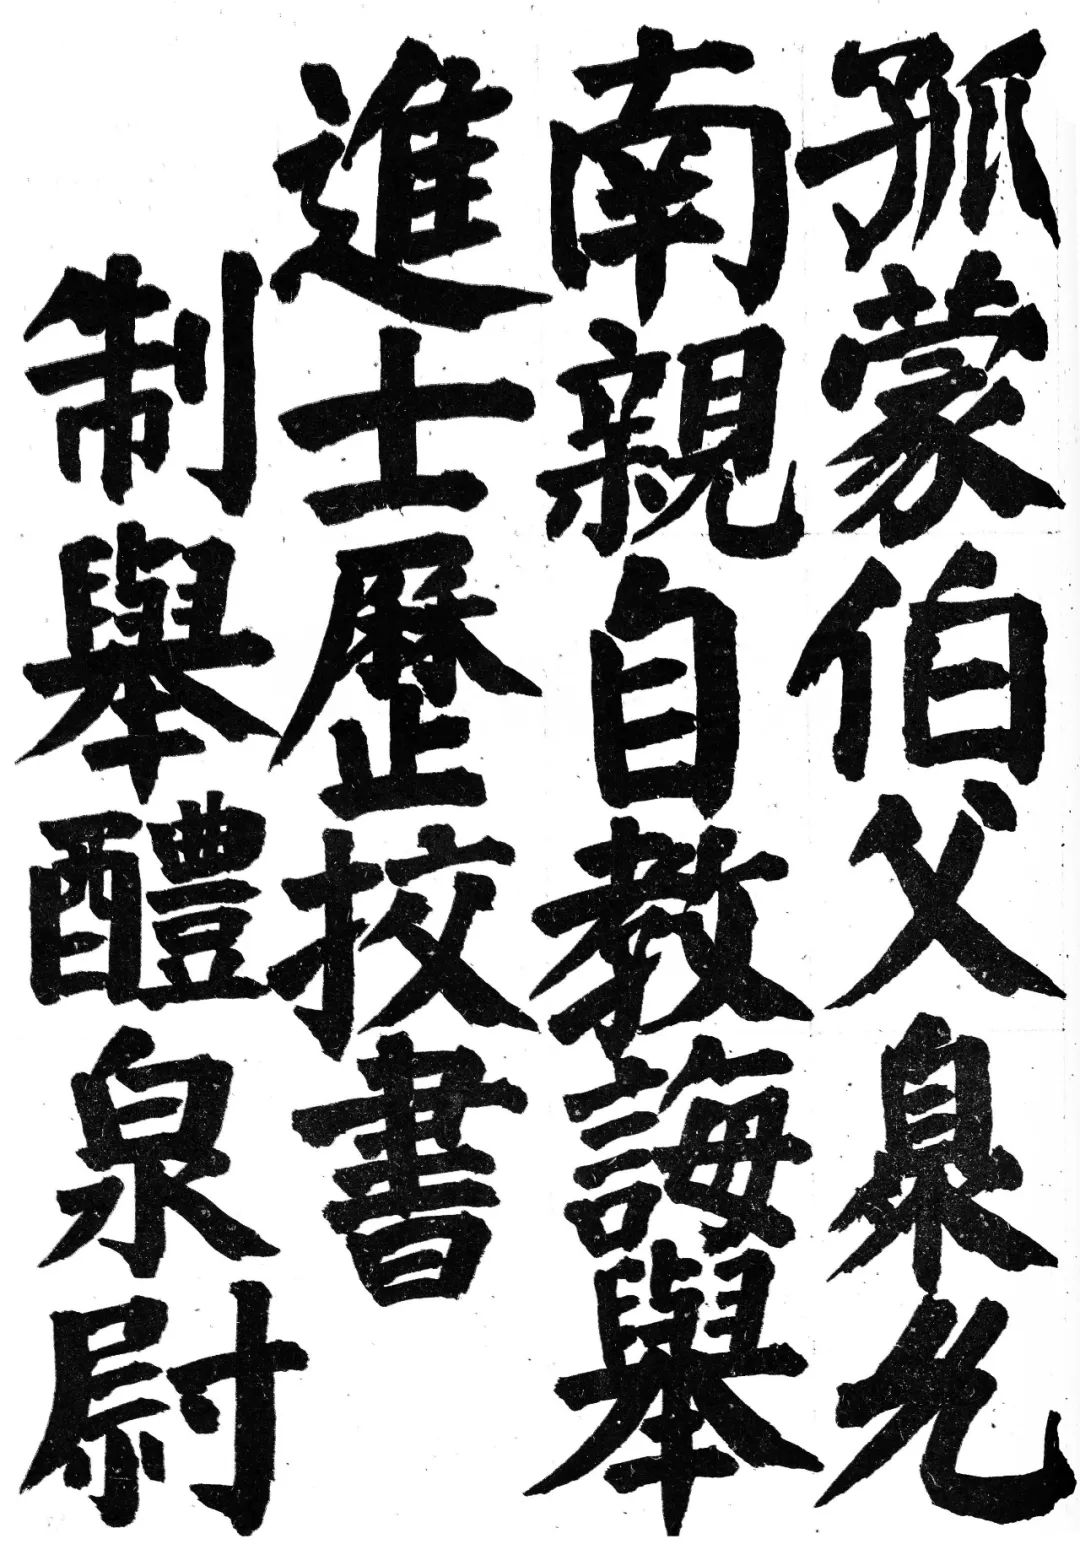 孤蒙伯父臮允
南親自教誨舉
進士歷挍書
制舉醴泉尉